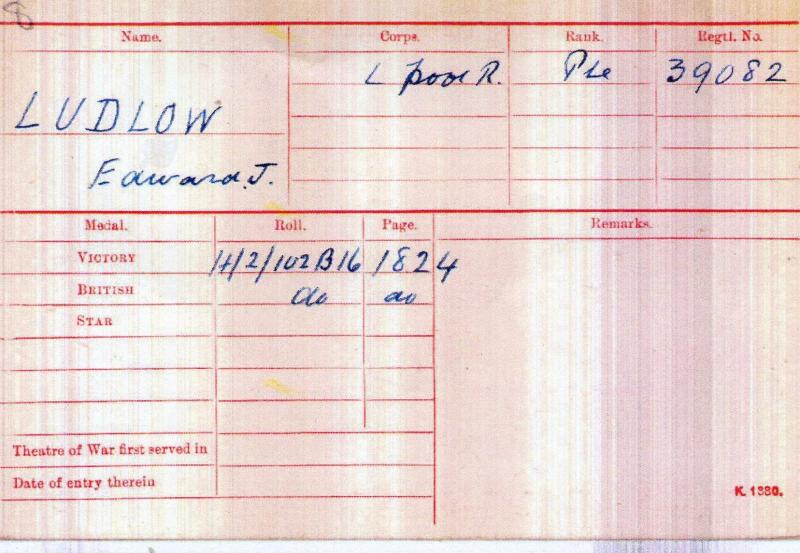 8
Name. Corps. Rank. Regtl. No.
L'pool R. Pte 39082
LUDLOW
Edward. J.
Medal. Roll. Page. Remarks.
VICTORY H/2/102B16 1824
BRITISH do do
STAR
Theatre of War first served in
Date of entry therein
K. 1380.